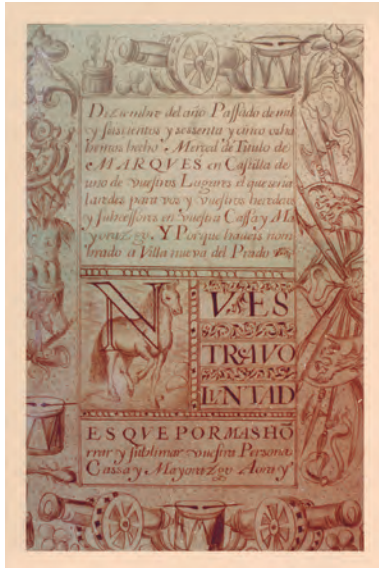 Diziembre del año Passado de mil
y seiscientos y sesenta y cinco os hu
bimos hecho Merced de Titulo de
MARQVES en Castilla de
uno de vuestros Lugares el que seña
laredes para vos y vuestros herederos
y subcessores en vuestra Cassa y Ma
yorazgo Y Porque haueis nom
brado a Villa nueva del Prado
NVES
TRAVO
LENTAD
ES QVE POR MAS HÕ
rrar y sublimar vuestra Persona
Cassa y Mayorazgo Aora y